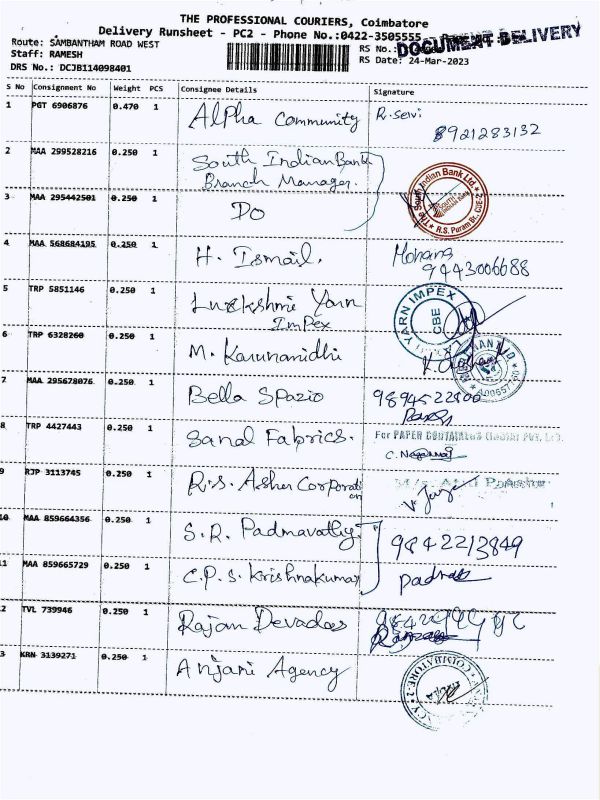 THE PROFESSIONAL COURIERS, Coimbatore
Delivery Runsheet - PC2 - Phone No.:0422-3505555
Route: SAMBANTHAM ROAD WEST
RS No.: DOCUMENT DELIVERY
Staff: RAMESH
RS Date: 24-Mar-2023
DRS No.: DCJB114098401
S No Consignment No Weight PCS Consignee Details Signature
1 PGT 6906876 0.470 1 Alpha Community R. Selvi
8921283132
2 MAA 299528216 0.250 1 South Indian Bank
Branch Manager.
The South Indian Bank Ltd.
R.S. Puram Br.
3 MAA 295442501 0.250 1 Do
4 MAA 568684195 0.250 1 H. Ismail. Mohana
9443006688
5 TRP 5851146 0.250 1 Luckshmi Yarn
Impex
YARN IMPEX
CBE
6 TRP 6328260 0.250 1 M. Karunanidhi
7 MAA 295678076 0.250 1 Bella Spazio
8 TRP 4427443 0.250 1 Sanal Fabrics. For PAPER CONTAINERS (INDIA) PVT. LTD.
9 RJP 3113745 0.250 1 R.S. Asher Corporation
10 MAA 859664356 0.250 1 S.R. Padmavathy 9842213849
11 MAA 859665729 0.250 1 C.P.S. Krishnakumar
12 TVL 739946 0.250 1 Rajan Devadas
13 KRN 3139271 0.250 1 Anjani Agency
COIMBATORE